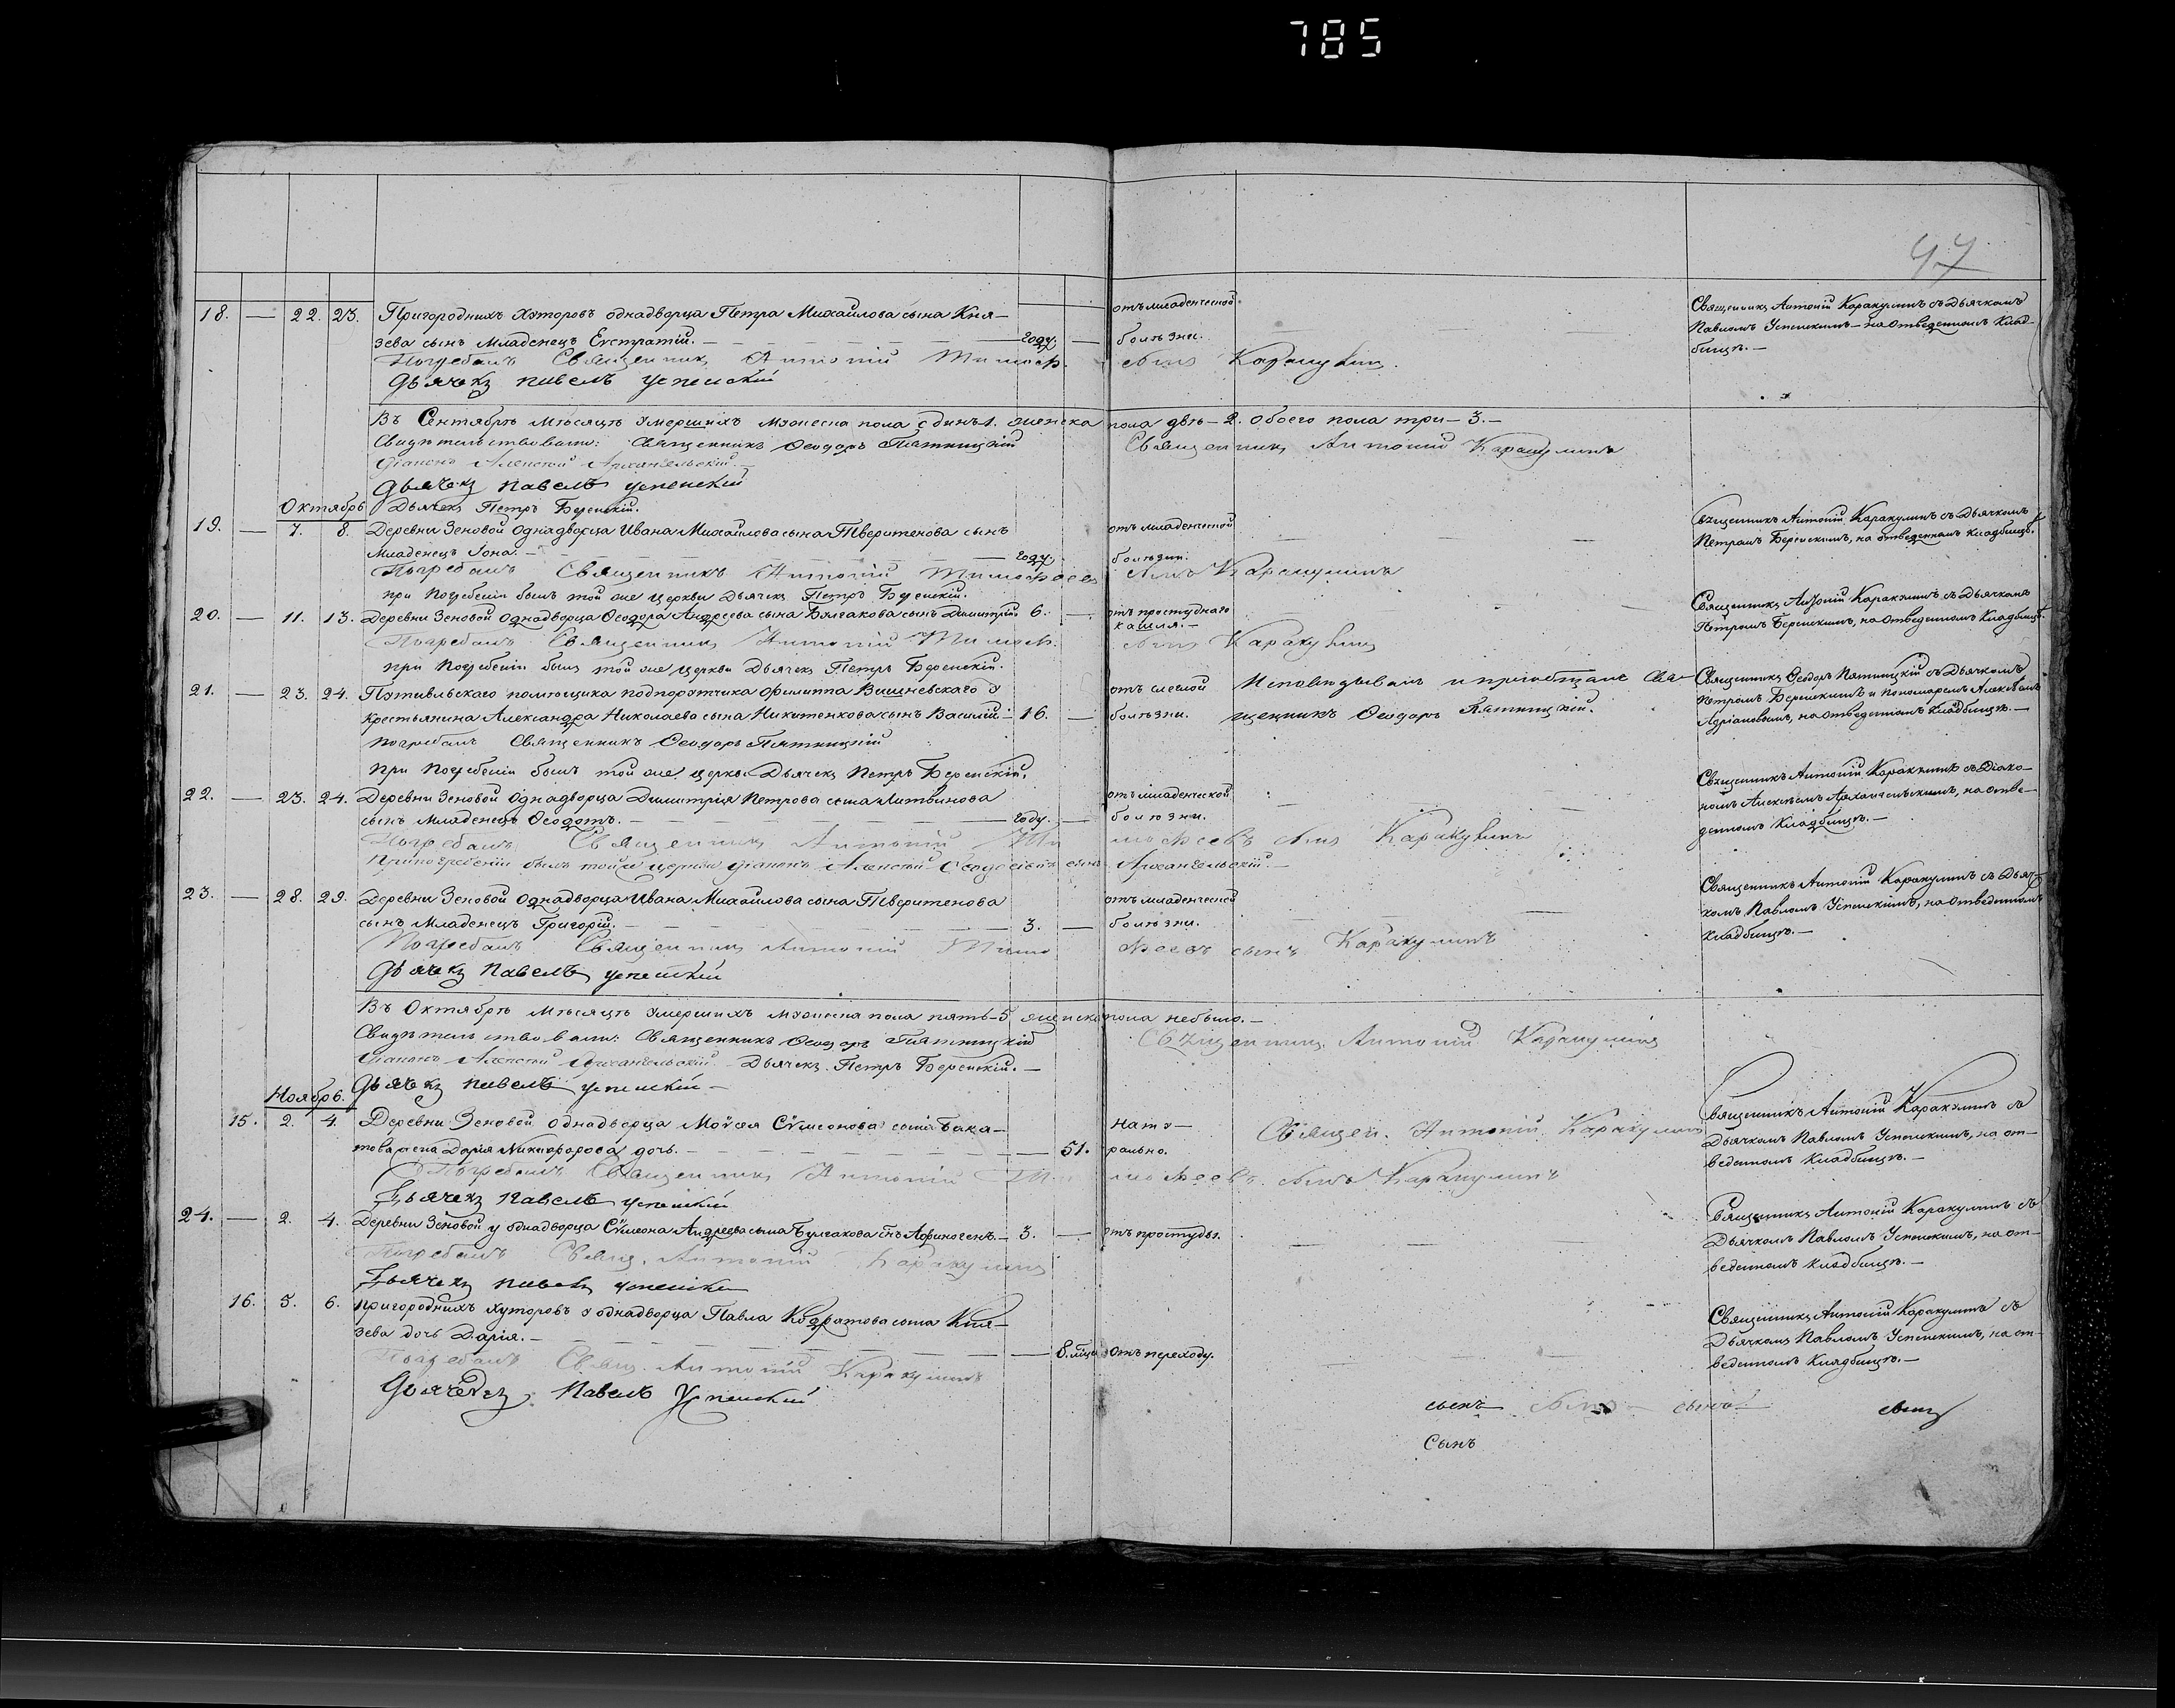 785
47
18. — 22. 23. Пригородныхъ хуторовъ однадворца Петра Михайлова сына Кня- отъ младенческой Священникъ Антоній Каракулинъ съ Дьячкомъ
зева сынъ Младенецъ Евстратій. — году. — болѣзни. Павломъ Успенскимъ — на отведенномъ Клад-
бищѣ. —
Погребалъ Священникъ Антоній Тимоф. сынъ Каракулинъ.
Дьячекъ Павелъ Успенскій
Въ Сентябрѣ мѣсяцѣ умершихъ мужеска пола единъ 1. женска пола двѣ — 2. обоего пола три — 3. —
Свидѣтельствовали: Священникъ Ѳеодоръ Пятницкій Священникъ Антоній Каракулинъ
Діаконъ Алексѣй Архангельскій. —
Дьячекъ Павелъ Успенскій
Октябрь Дьячекъ Петръ Беренскій.
19. — 7. 8. Деревни Зеновой Однадворца Ивана Михайлова сына Тверитенова сынъ отъ младенческой Священникъ Антоній Каракулинъ съ Дьячкомъ
Младенецъ Іона. — году. болѣзни. — Петромъ Беренскимъ, на отведенномъ кладбищѣ.
Погребалъ Священникъ Антоній Тимофеевъ сынъ Каракулинъ
при Погребеніи былъ той же церкви Дьячекъ Петръ Беренскій.
20. — 11. 13. Деревни Зеновой Однадворца Ѳеодора Андреева сына Булгакова сынъ Димитрій 6. — отъ простуднаго кашля. — Священникъ Антоній Каракулинъ съ Дьячкомъ
Петромъ Беренскимъ, на Отведенномъ Кладбищѣ.
Погребалъ Священникъ Антоній Тимоф. сынъ Каракулинъ
при Погребеніи былъ той же церкви Дьячекъ Петръ Беренскій.
21. — 23. 24. Путивльскаго помѣщика подпорутчика Филиппа Вишневскаго у отъ Исповѣдывалъ и пріобщалъ Свя- Священникъ Ѳеодоръ Пятницкій съ Дьячкомъ
крестьянина Александра Николаева сына Никитенкова сынъ Василій — 16. — болѣзни. щенникъ Ѳеодоръ Пятницкій. Петромъ Беренскимъ и пономаремъ Алексѣемъ
Адріановымъ, на отведенномъ кладбищѣ. —
погребалъ Священникъ Ѳеодоръ Пятницкій
при погребеніи былъ той же церкви Дьячекъ Петръ Беренскій.
22. — 23. 24. Деревни Зеновой Однадворца Димитрія Петрова сына Литвинова отъ младенческой Священникъ Антоній Каракулинъ съ Діако-
сынъ младенецъ Ѳеодотъ. — году. — болѣзни. номъ Алексѣемъ Архангельскимъ, на отве-
денномъ Кладбищѣ. —
Погребалъ Священникъ Антоній Тимофеевъ сынъ Каракулинъ
при погребеніи былъ той же церкви Діаконъ Алексѣй Ѳеодосіевъ сынъ Архангельскій. —
23. — 28. 29. Деревни Зеновой Однадворца Ивана Михайлова сына Тверитенова отъ младенческой Священникъ Антоній Каракулинъ съ Дьяч-
сынъ Младенецъ Григорій. — 3. — болѣзни. комъ Павломъ Успенскимъ, на отведенномъ
кладбищѣ. —
Погребалъ Священникъ Антоній Тимофеевъ сынъ Каракулинъ
Дьячекъ Павелъ Успенскій
Въ Октябрѣ мѣсяцѣ умершихъ мужеска пола пять — 5 женска пола небыло. —
Свидѣтельствовали: Священникъ Ѳеодоръ Пятницкій Священникъ Антоній Каракулинъ
Діаконъ Алексѣй Архангельскій. Дьячекъ Петръ Беренскій. —
Дьячекъ Павелъ Успенскій —
Ноябрь.
15. 2. 4. Деревни Зеновой однадворца Моѵсея Сѵмеонова сына Бака- нату- Священ. Антоній Каракулинъ Священникъ Антоній Каракулинъ съ
това жена Дарія Никифорова дочь. — 51. рально. Дьячкомъ Павломъ Успенскимъ, на от-
веденномъ Кладбищѣ. —
Погребалъ Священникъ Антоній Тимофеевъ сынъ Каракулинъ
Дьячекъ Павелъ Успенскій
24. — 2. 4. Деревни Зеновой у однадворца Сѵмеона Андреева сына Булгакова сынъ Афиногенъ. — 3. — отъ простуды. Священникъ Антоній Каракулинъ съ
Дьячкомъ Павломъ Успенскимъ, на от-
веденномъ кладбищѣ. —
Погребалъ Свящ. Антоній Каракулинъ
Дьячекъ Павелъ Успенскій
16. 5. 6. пригородныхъ хуторовъ у однадворца Павла Кодратова сына Кня- Священникъ Антоній Каракулинъ съ
зева дочь Дарія. — 8. мѣся. отъ переходу. Дьячкомъ Павломъ Успенскимъ, на от-
веденномъ Кладбищѣ. —
Погребалъ Свящ. Антоній Каракулинъ
Дьячекъ Павелъ Успенскій
сынъ сынъ сынъ сынъ
Сынъ